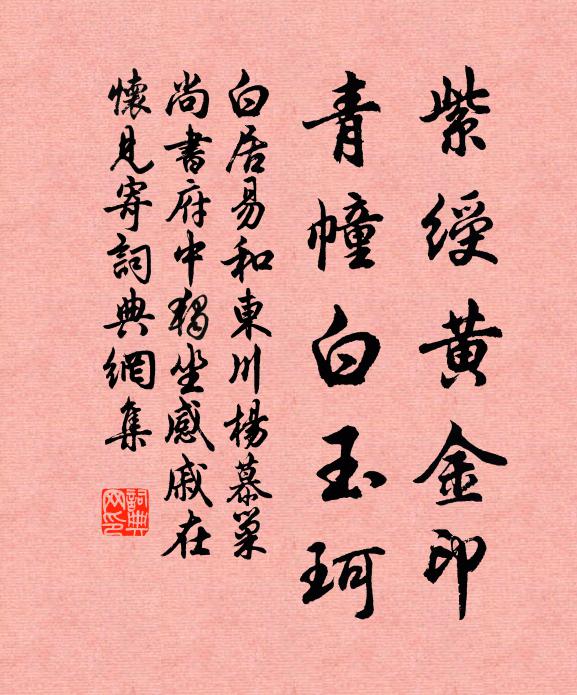 紫綬黄金印
青幢白玉珂
白居易和東川楊慕巢
尚書府中獨坐感戚在
懷見寄詞典網集
詞典
网印